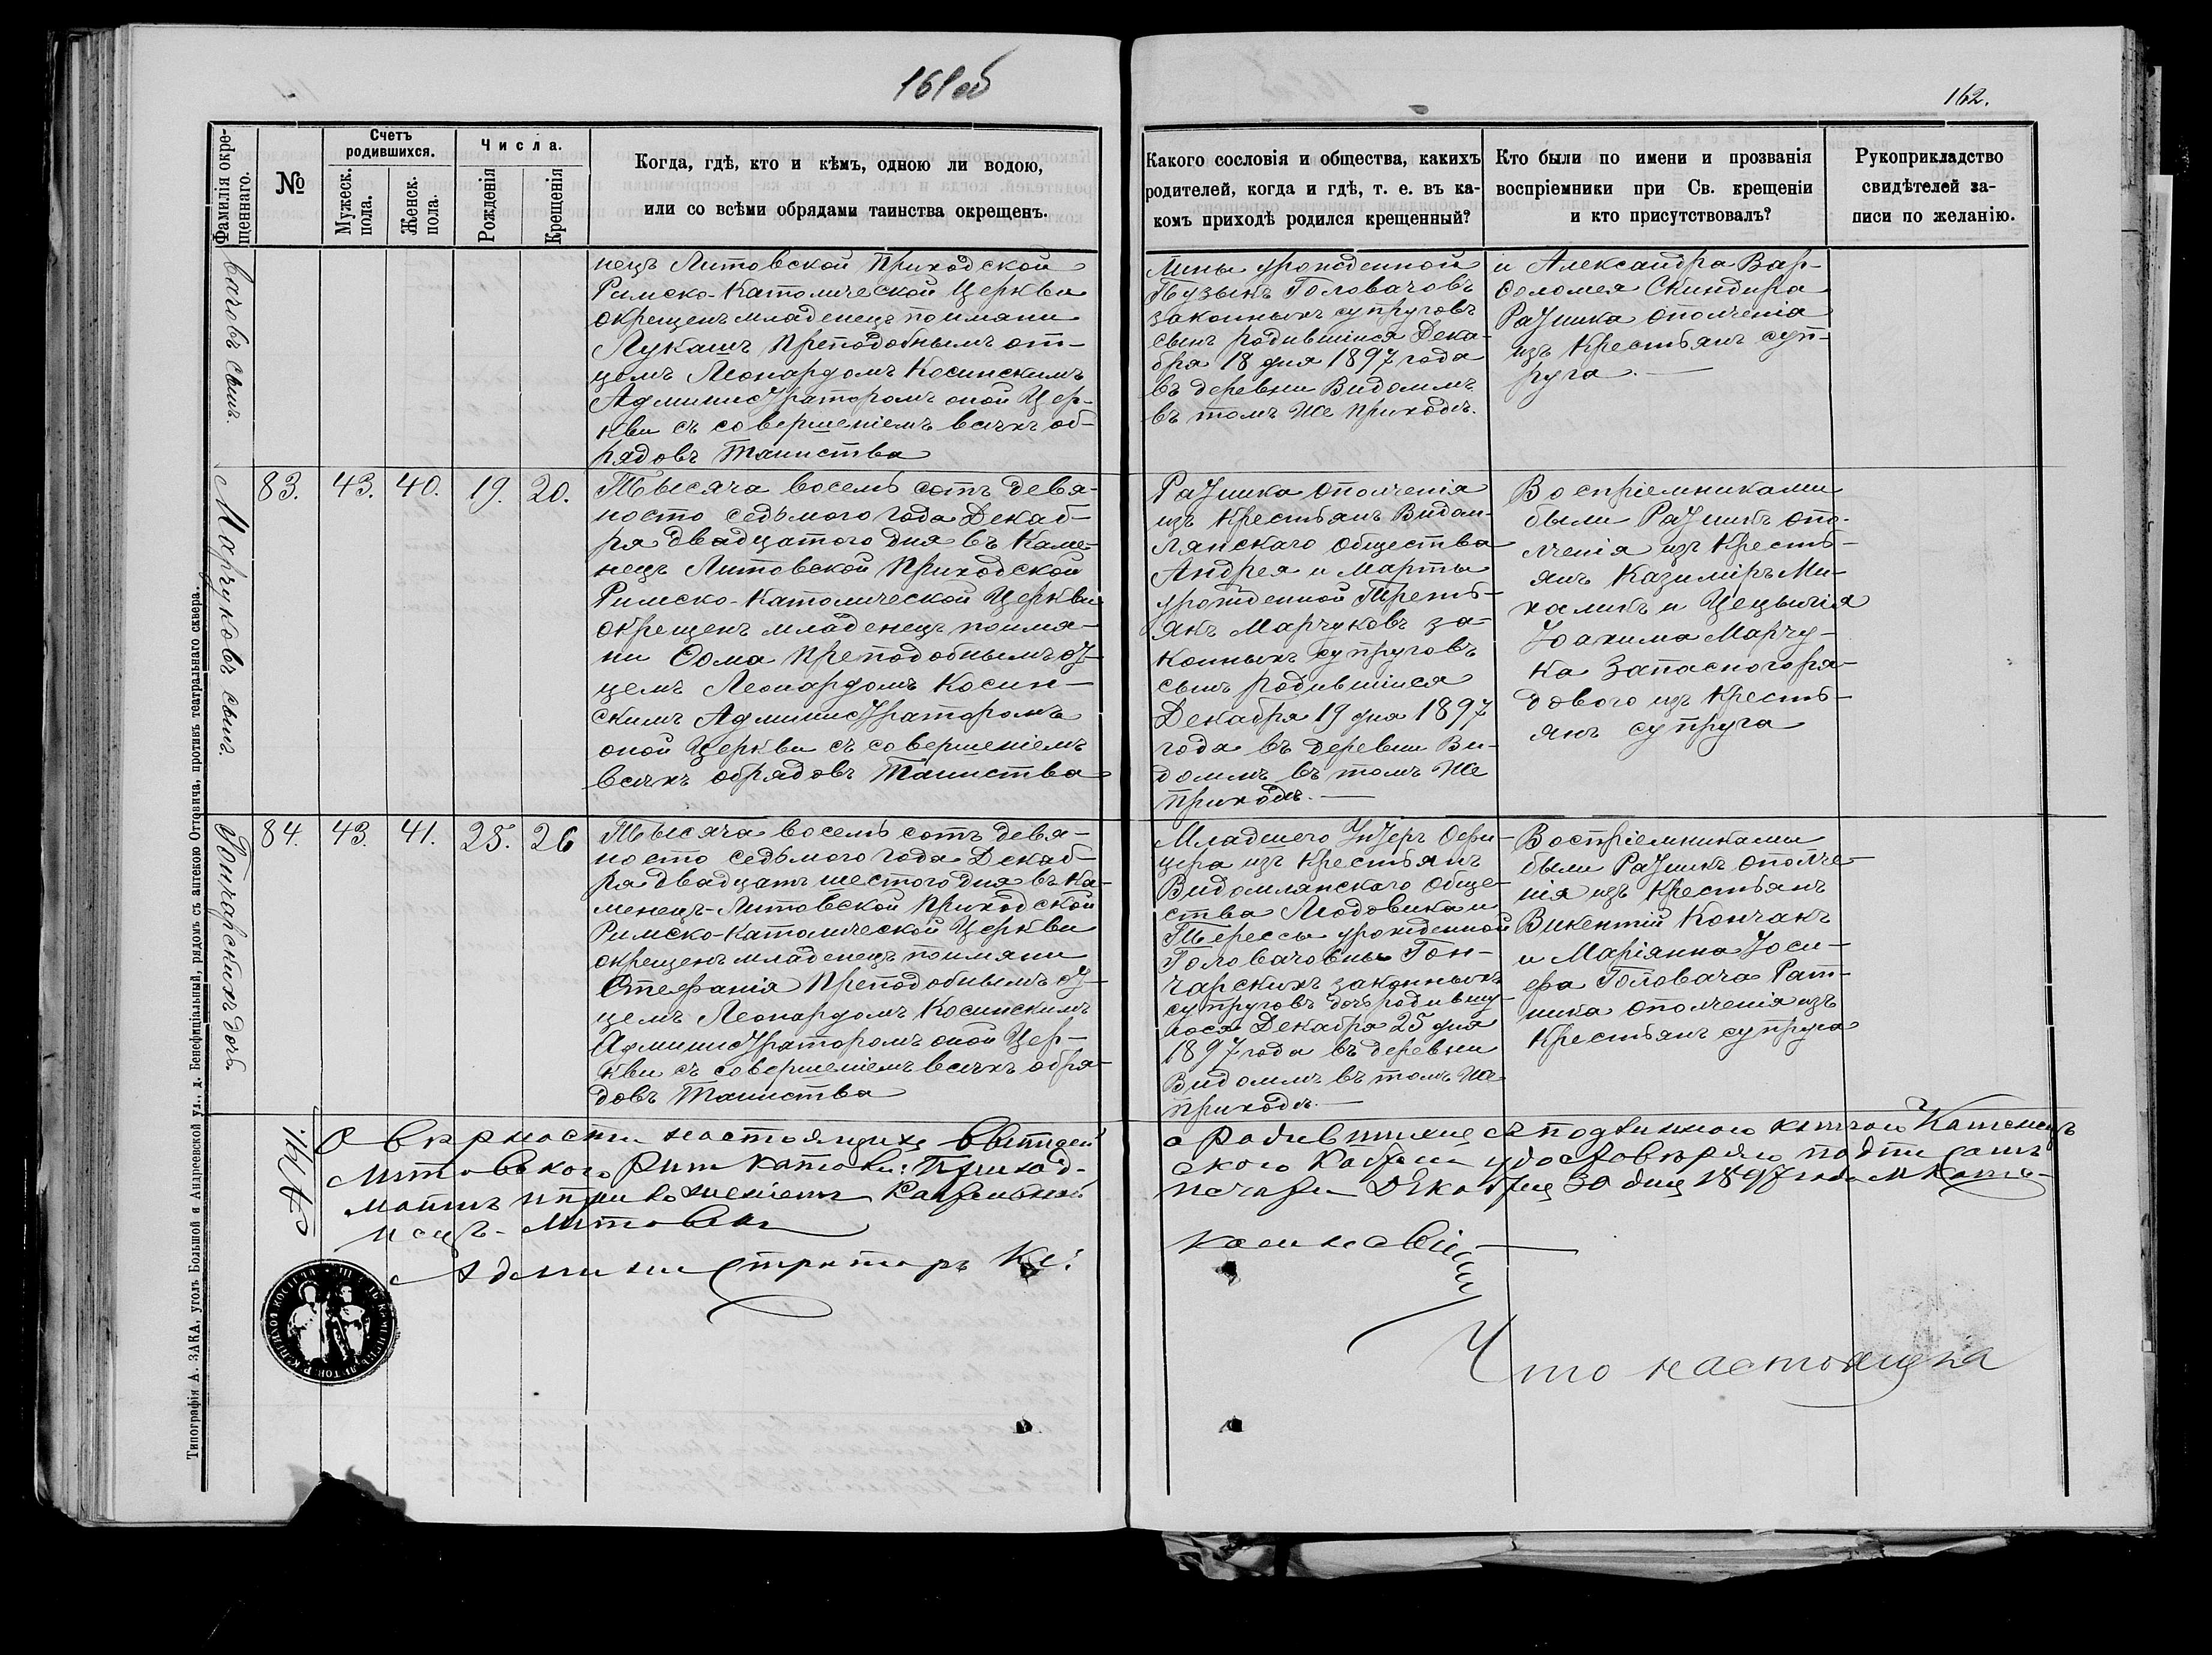 161 об
162.
Фамилія окре-
щеннаго.
№
Счетъ
родившихся.
Мужеск.
пола.
Женск.
пола.
Числа.
Рожденія
Крещенія
Когда, гдѣ, кто и кѣмъ, одною ли водою,
или со всѣми обрядами таинства окрещенъ.
Какого сословія и общества, какихъ
родителей, когда и гдѣ, т. е. въ ка-
комъ приходѣ родился крещенный?
Кто были по имени и прозванія
воспріемники при Св. крещеніи
и кто присутствовалъ?
Рукоприкладство
свидѣтелей за-
писи по желанію.
вачовъ сынъ.
нецъ Литовской Приходской
Римско-Католической Церкви
окрещенъ младенецъ по имяни
Лукашъ Преподобнымъ от-
цемъ Леонардомъ Косинскимъ
Администраторомъ оной Цер-
кви съ совершеніемъ всѣхъ об-
рядовъ Таинства
лины урожденной
Пузыкъ Головачовъ
законныхъ супруговъ
сынъ родившійся Дека-
бря 18 дня 1897 года
въ деревни Видомлѣ
въ томъ же приходѣ.
и Александра Вар-
ѳоломея Скиндира
Ратника ополченія
изъ крестьянъ суп-
руга.
Марчуковъ сынъ.
83. 43. 40. 19. 20.
Тысяча восемь сотъ девя-
носто седьмого года Декаб-
ря двадцатого дня въ Каме-
нецъ Литовской Приходской
Римско-Католической Церкви
окрещенъ младенецъ по имя-
ни Ѳома Преподобнымъ от-
цемъ Леонардомъ Косин-
скимъ Администраторомъ
оной Церкви съ совершеніемъ
всѣхъ обрядовъ Таинства
Ратника ополченія
изъ крестьянъ Видом-
лянскаго общества
Андрея и Марты
урожденной Треть-
якъ Марчуковъ за-
конныхъ супруговъ
сынъ родившійся
Декабря 19 дня 1897
года въ деревни Ви-
домлѣ въ томъ же
приходѣ.
Воспріемниками
были Ратникъ опо-
лченія изъ кресть-
янъ Казиміръ Ми-
халикъ и Цецылія
Іоахима Марчу-
ка запасного ря-
дового изъ кресть-
янъ супруга
Гончарскихъ дочь.
84. 43. 41. 25. 26
Тысяча восемь сотъ девя-
носто седьмого года Декаб-
ря двадцать шестого дня въ Ка-
менецъ-Литовской Приходской
Римско-Католической Церкви
окрещенъ младенецъ по имяни
Стефанія Преподобнымъ от-
цемъ Леонардомъ Косинскимъ
Администраторомъ оной Цер-
кви съ совершеніемъ всѣхъ обря-
довъ Таинства
Младшего Унтеръ Офи-
цера изъ крестьянъ
Видомлянскаго обще-
ства Людовика и
Терессы урожденной
Головачовны Гон-
чарскихъ законныхъ
супруговъ дочь родившу-
юся Декабря 25 дня
1897 года въ деревни
Видомлѣ въ томъ же
приходѣ.
Воспріемниками
были Ратникъ ополче-
нія изъ крестьянъ
Викентій Кончакъ
и Маріанна Іоси-
фа Головача Рат-
ника ополченія изъ
крестьянъ супруга
О вѣрности настоящихъ
Литовского Рим Катол: Приход-
приложеніемъ
нецъ-Литовск
Администраторъ Кс:
о родившихся съ подлинною книгою Каменец
ского удостовѣряю подписомъ
печати Декабря 30 дня 1897 года М Каме-
Косинскій
Что настоящая
Типографія А. ЗАКА, уголъ Большой и Андреевской ул., д. Бенефиціальный, рядомъ съ аптекою Оттовича, противъ театральнаго сквера.